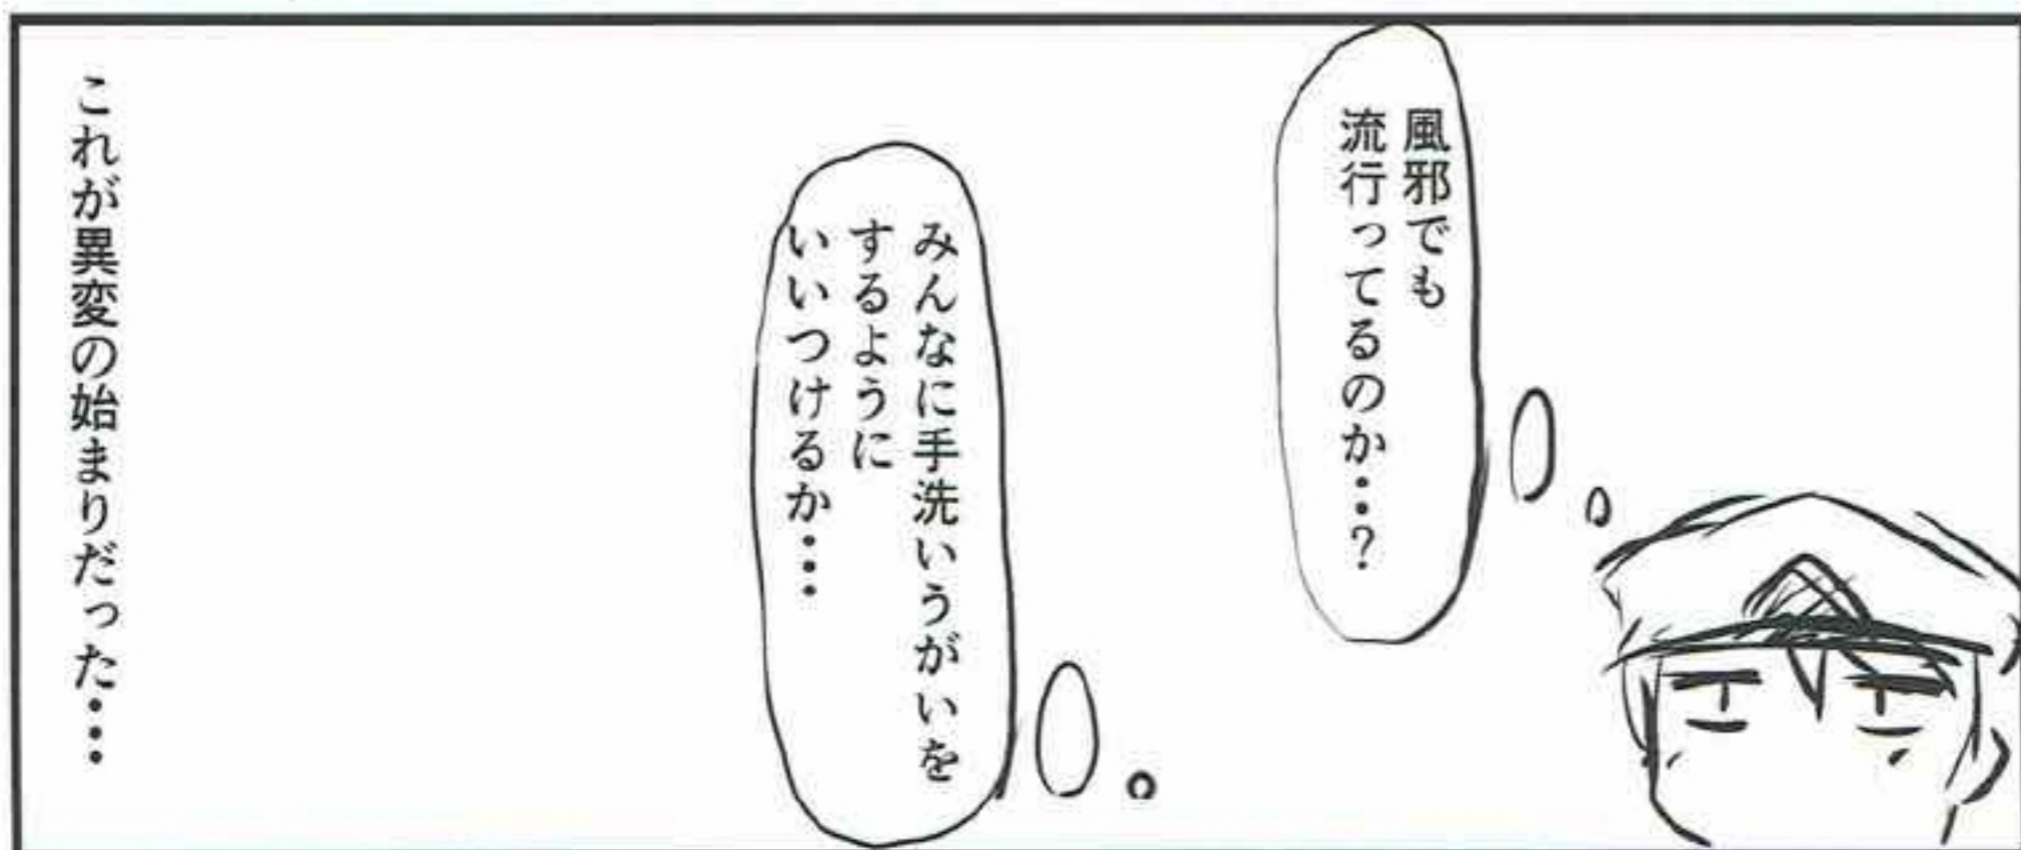 風邪でも
流行ってるのか・・?
みんなに手洗いうがいを
するように
いいつけるか・・・
これが異変の始まりだった・・・